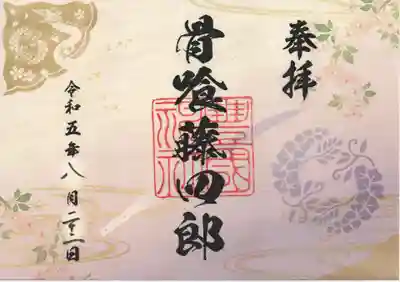 奉拝
骨喰藤四郎
豊国神社
令和五年八月二十一日